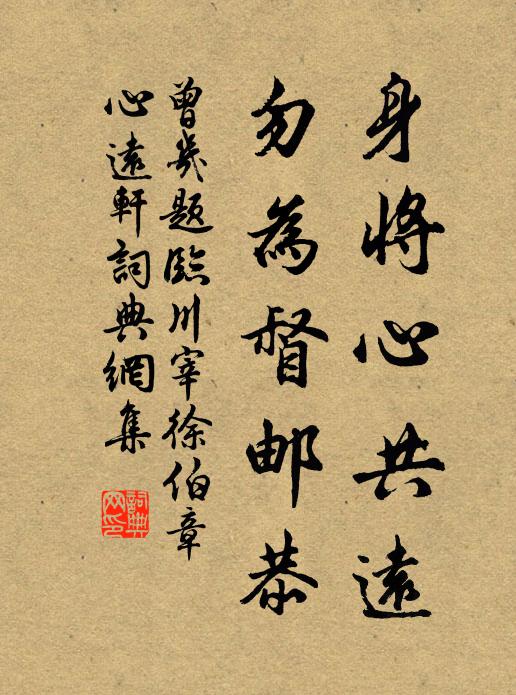 身將心共遠
勿為督邮恭
曾幾題臨川宰徐伯章
心遠軒詞典網集
詞典網印